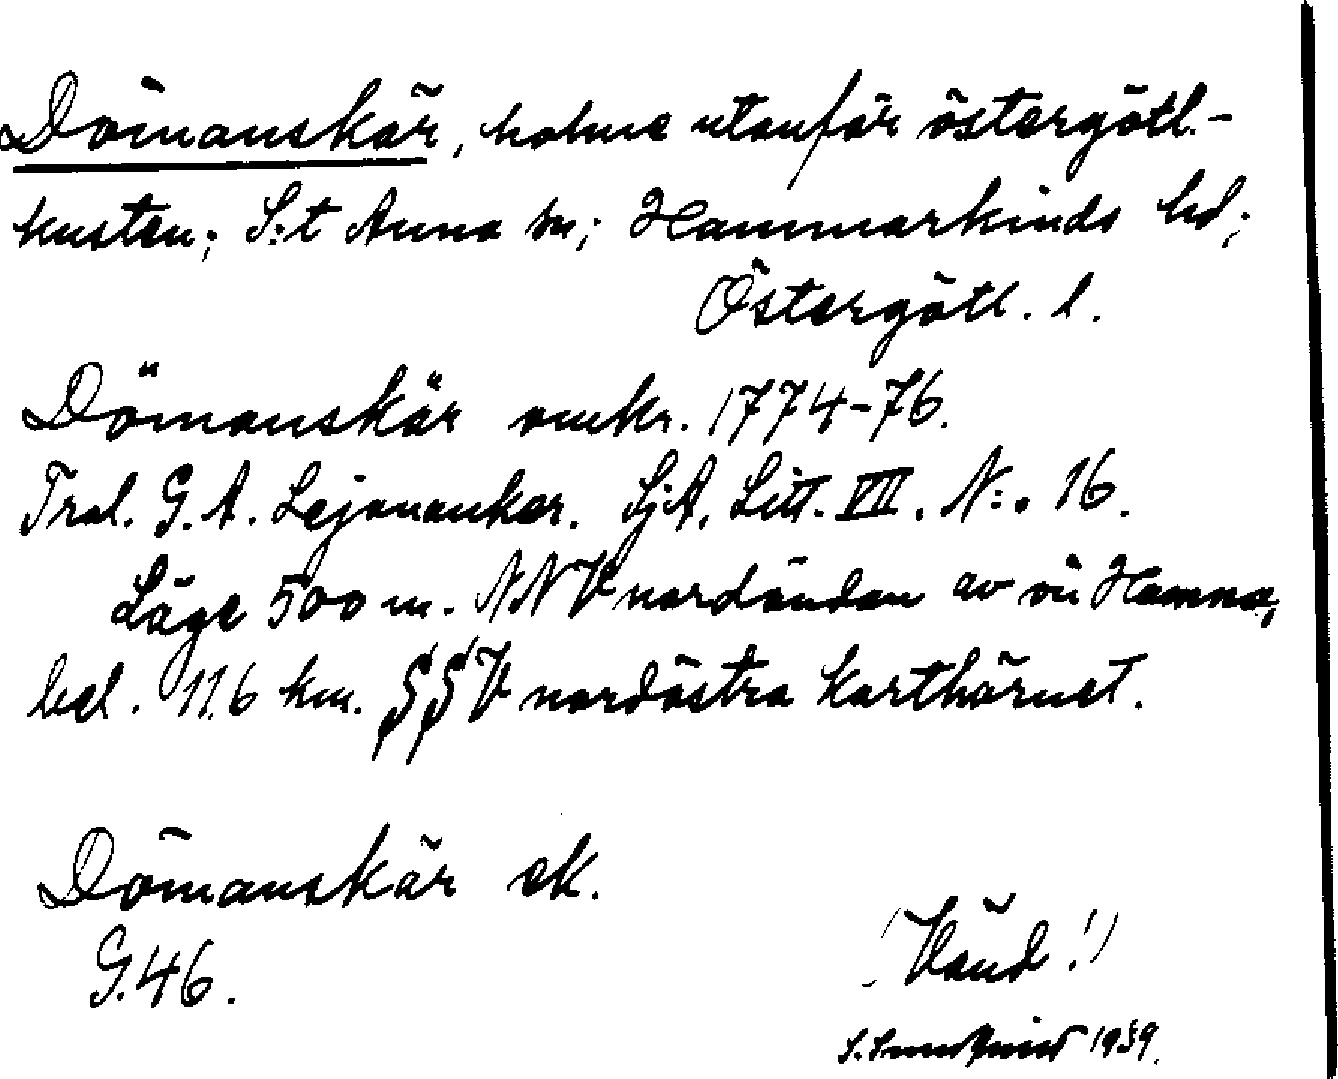 Dömanskär, holme utanför östergötl.-
kusten; S:t Anna sn; Hammarkinds hd;
Östergötl. l.
Dömanskär omkr. 1774-76.
Trol. G. A. Lejonanker. SjA, Litt. VIII. N:o 16.
Läge 500 m. NNV nordändan av ön Hamnö,
bel. 11.6 km. SSV nordöstra karthörnet.
Dömanskär ek.
G.46.
(Vänd!)
1939.